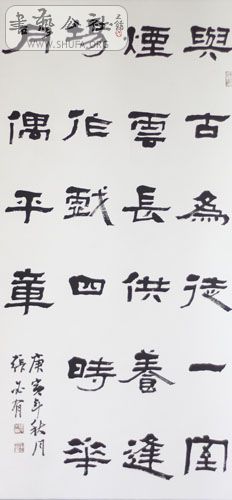 與古為徒一室
煙雲長供養逢
場作戲四時華
月偶平章
庚寅年秋月
張
有
公社
WWW.SHUFA.ORG